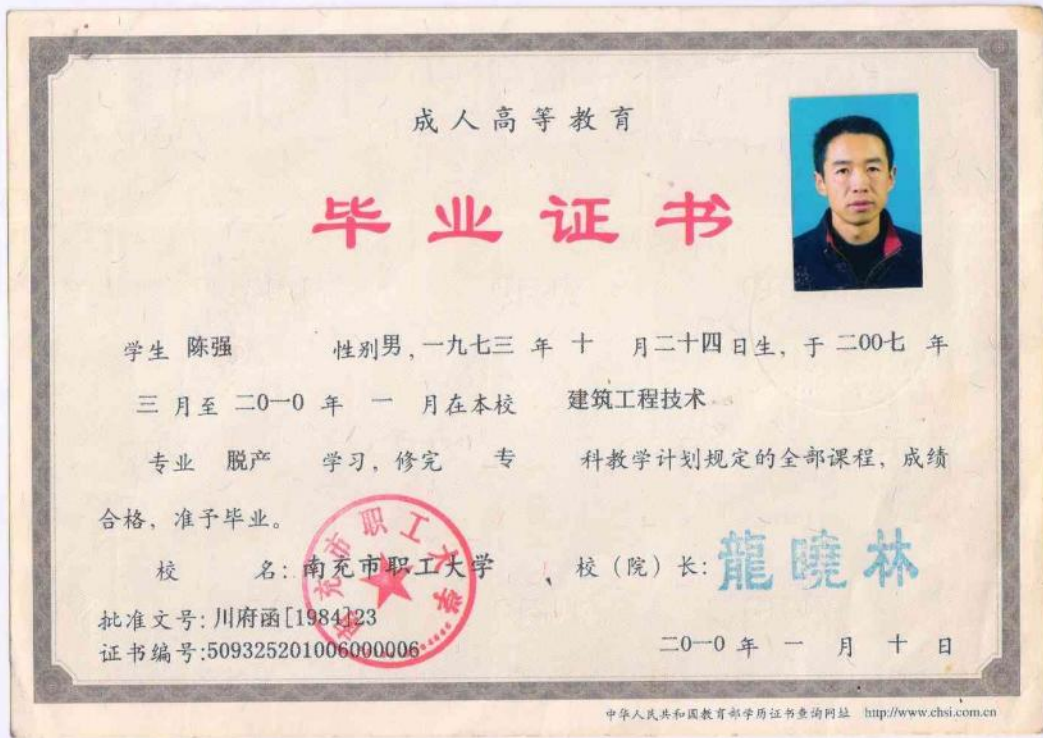 成人高等教育
毕业证书
学生 陈强 性别男,一九七三 年 十 月二十四日生, 于 二00七 年
三 月至 二0一0 年 一 月在本校 建筑工程技术
专业 脱产 学习, 修完 专 科教学计划规定的全部课程, 成绩
合格, 准予毕业。
校 名: 南充市职工大学 校 (院) 长: 龍曉林
南充市职工大学
批准文号: 川府函[1984]23
证书编号:509325201006000006
二0一0 年 一 月 十 日
中华人民共和国教育部学历证书查询网址 http://www.chsi.com.cn